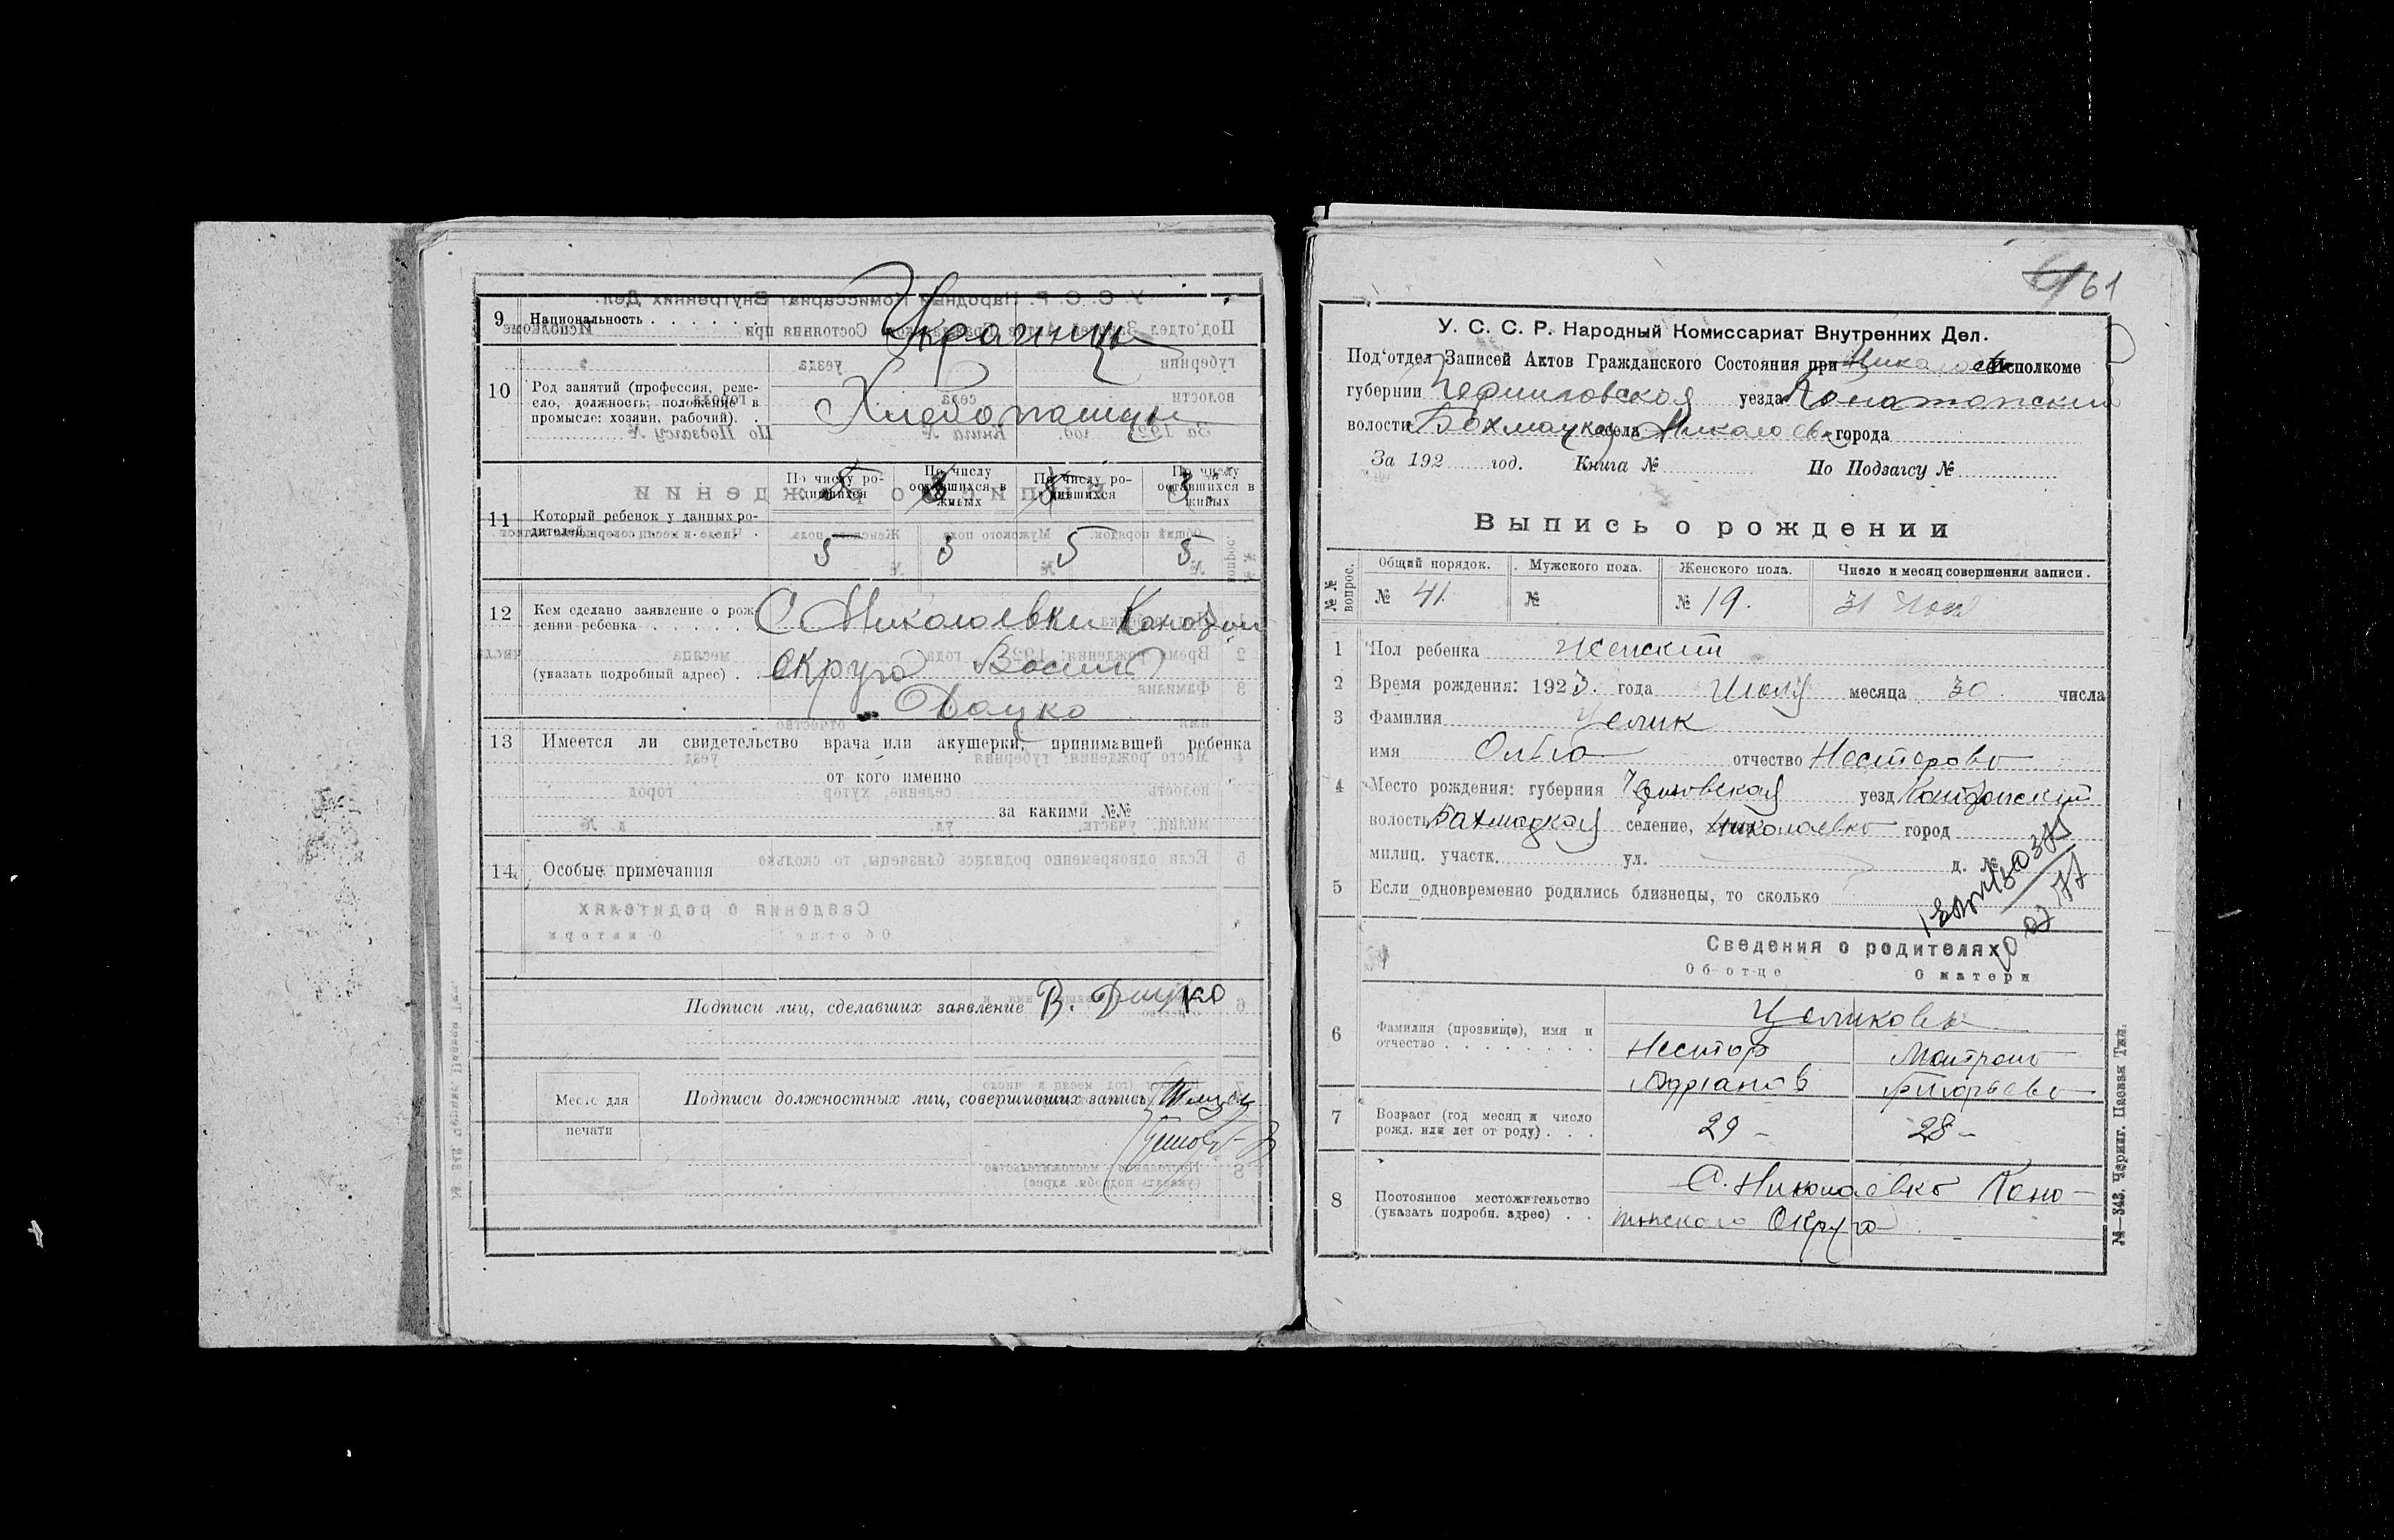 9 Национальность Украинцы
10 Род занятий (профессия, реме-
сло, должность: положение в
промысле: хозяин, рабочий). Хлебопашцы
По числу ро-
дившихся
По числу
оставшихся в
живых
По числу ро-
дившихся
По числу
оставшихся в
живых
5 3 5 3
11 Который ребенок у данных ро-
дителей
5 3 5
12 Кем сделано заявление о рож-
дении ребенка С Николаевки
(указать подробный адрес) округа
Дацко
13 Имеется ли свидетельство врача или акушерки, принимавшей ребенка
от кого именно
за какими №№
14. Особые примечания
Подписи лиц, сделавших заявление В. Дацко
Место для
печати
Подписи должностных лиц, совершивших запись
61
У. С. С. Р. Народный Комиссариат Внутренних Дел.
Под'отдел Записей Актов Гражданского Состояния при Исполкоме
губернии Черниговская уезда Конотопский
волости Бахмацкая села города
За 192 год. Книга № По Подзагсу №
Выпись о рождении
№№ вопрос. Общий порядок. Мужского пола. Женского пола. Число и месяц совершения записи.
№ 41. № № 19. 31
1 Пол ребенка женский
2 Время рождения: 1923. года Июля месяца 30 числа
3 Фамилия Целик
имя Ольга отчество Несторовна
4 Место рождения: губерния уезд
волость Бахмацкая селение, Николаевка город
милиц. участк. ул. д. №
5 Если одновременно родились близнецы, то сколько
Сведения о родителях
Об отце О матери
6 Фамилия (прозвище), имя и
отчество
Целиковы
Нестор
Адрианов
Григорьева
7 Возраст (год месяц и число
рожд. или лет от роду) 29 – 28 –
8 Постоянное местожительство
(указать подробн. адрес)
С. Николаевка Коно-
топского Округа
№—343. Черниг. Паевая Тип.